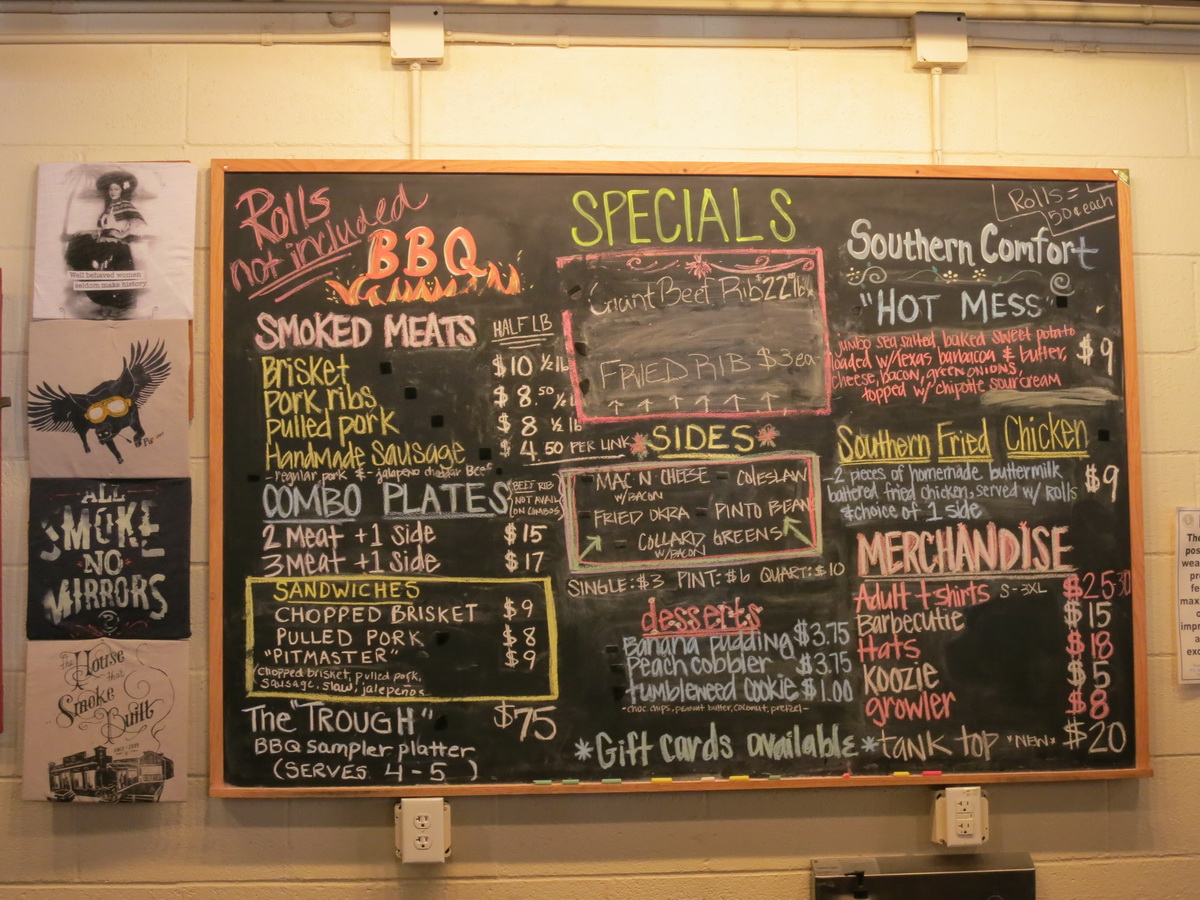 Well behaved women
seldom make history
ALL
SMOKE
NO
MIRRORS
the House
that
Smoke
Built
Rolls
not included
BBQ
SMOKED MEATS HALF LB
Brisket $10 ½ lb
Pork ribs $8.50 ½ lb
Pulled pork $8 ½ lb
Handmade Sausage $4.50 PER LINK
- regular pork & - jalapeno cheddar Beef
COMBO PLATES (BEEF RIB NOT AVAIL ON COMBOS)
2 Meat + 1 Side $15
3 Meat + 1 Side $17
SANDWICHES
CHOPPED BRISKET $9
PULLED PORK $8
"PITMASTER" $9
(chopped brisket, pulled pork,
sausage, slaw, jalepenos
The "TROUGH" $75
BBQ sampler platter
(SERVES 4-5 )
SPECIALS
Giant Beef Rib $22 lb
FRIED RIB $3ea
SIDES
- MAC N CHEESE - COLESLAW
W/BACON
FRIED OKRA - PINTO BEAN
- COLLARD GREENS
W/BACON
SINGLE: $3 PINT: $6 QUART: $10
desserts
Banana pudding $3.75
Peach cobbler $3.75
tumbleweed cookie $1.00
- choc chips, peanut butter, coconut, pretzel -
*Gift cards available*
Rolls =
50¢ each
Southern Comfort
"HOT MESS"
jumbo sea salted baked sweet potato
loaded w/texas barbacoa & butter, $9
cheese, bacon, green onions,
topped w/ chipotle sour cream
Southern Fried Chicken
-2 pieces of homemade buttermilk
battered fried chicken, served w/ rolls $9
& choice of 1 side
MERCHANDISE
Adult t shirts S-3XL $25
Barbecutie $15
Hats $18
Koozie $5
growler $8
tank top *NEW* $20